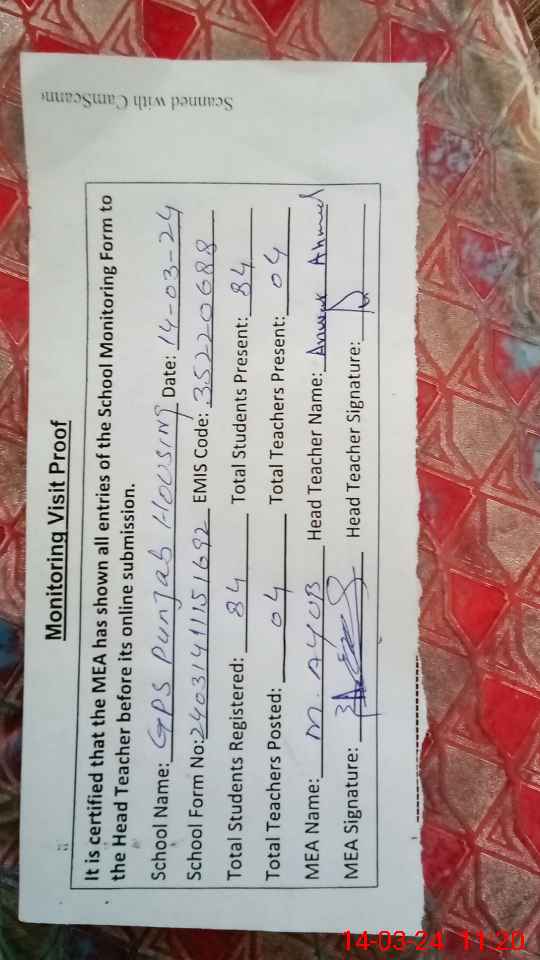 Scanned with CamScanne
Monitoring Visit Proof
It is certified that the MEA has shown all entries of the School Monitoring Form to
the Head Teacher before its online submission.
School Name: GPS Punjab HOUSING Date: 14-03-24
School Form No: 24031411151692 EMIS Code: 35220688
Total Students Registered: 84 Total Students Present: 84
Total Teachers Posted: 04 Total Teachers Present: 04
MEA Name: M. AYUB Head Teacher Name: Anwar Ahmed
MEA Signature: Head Teacher Signature:
14-03-24 11:20